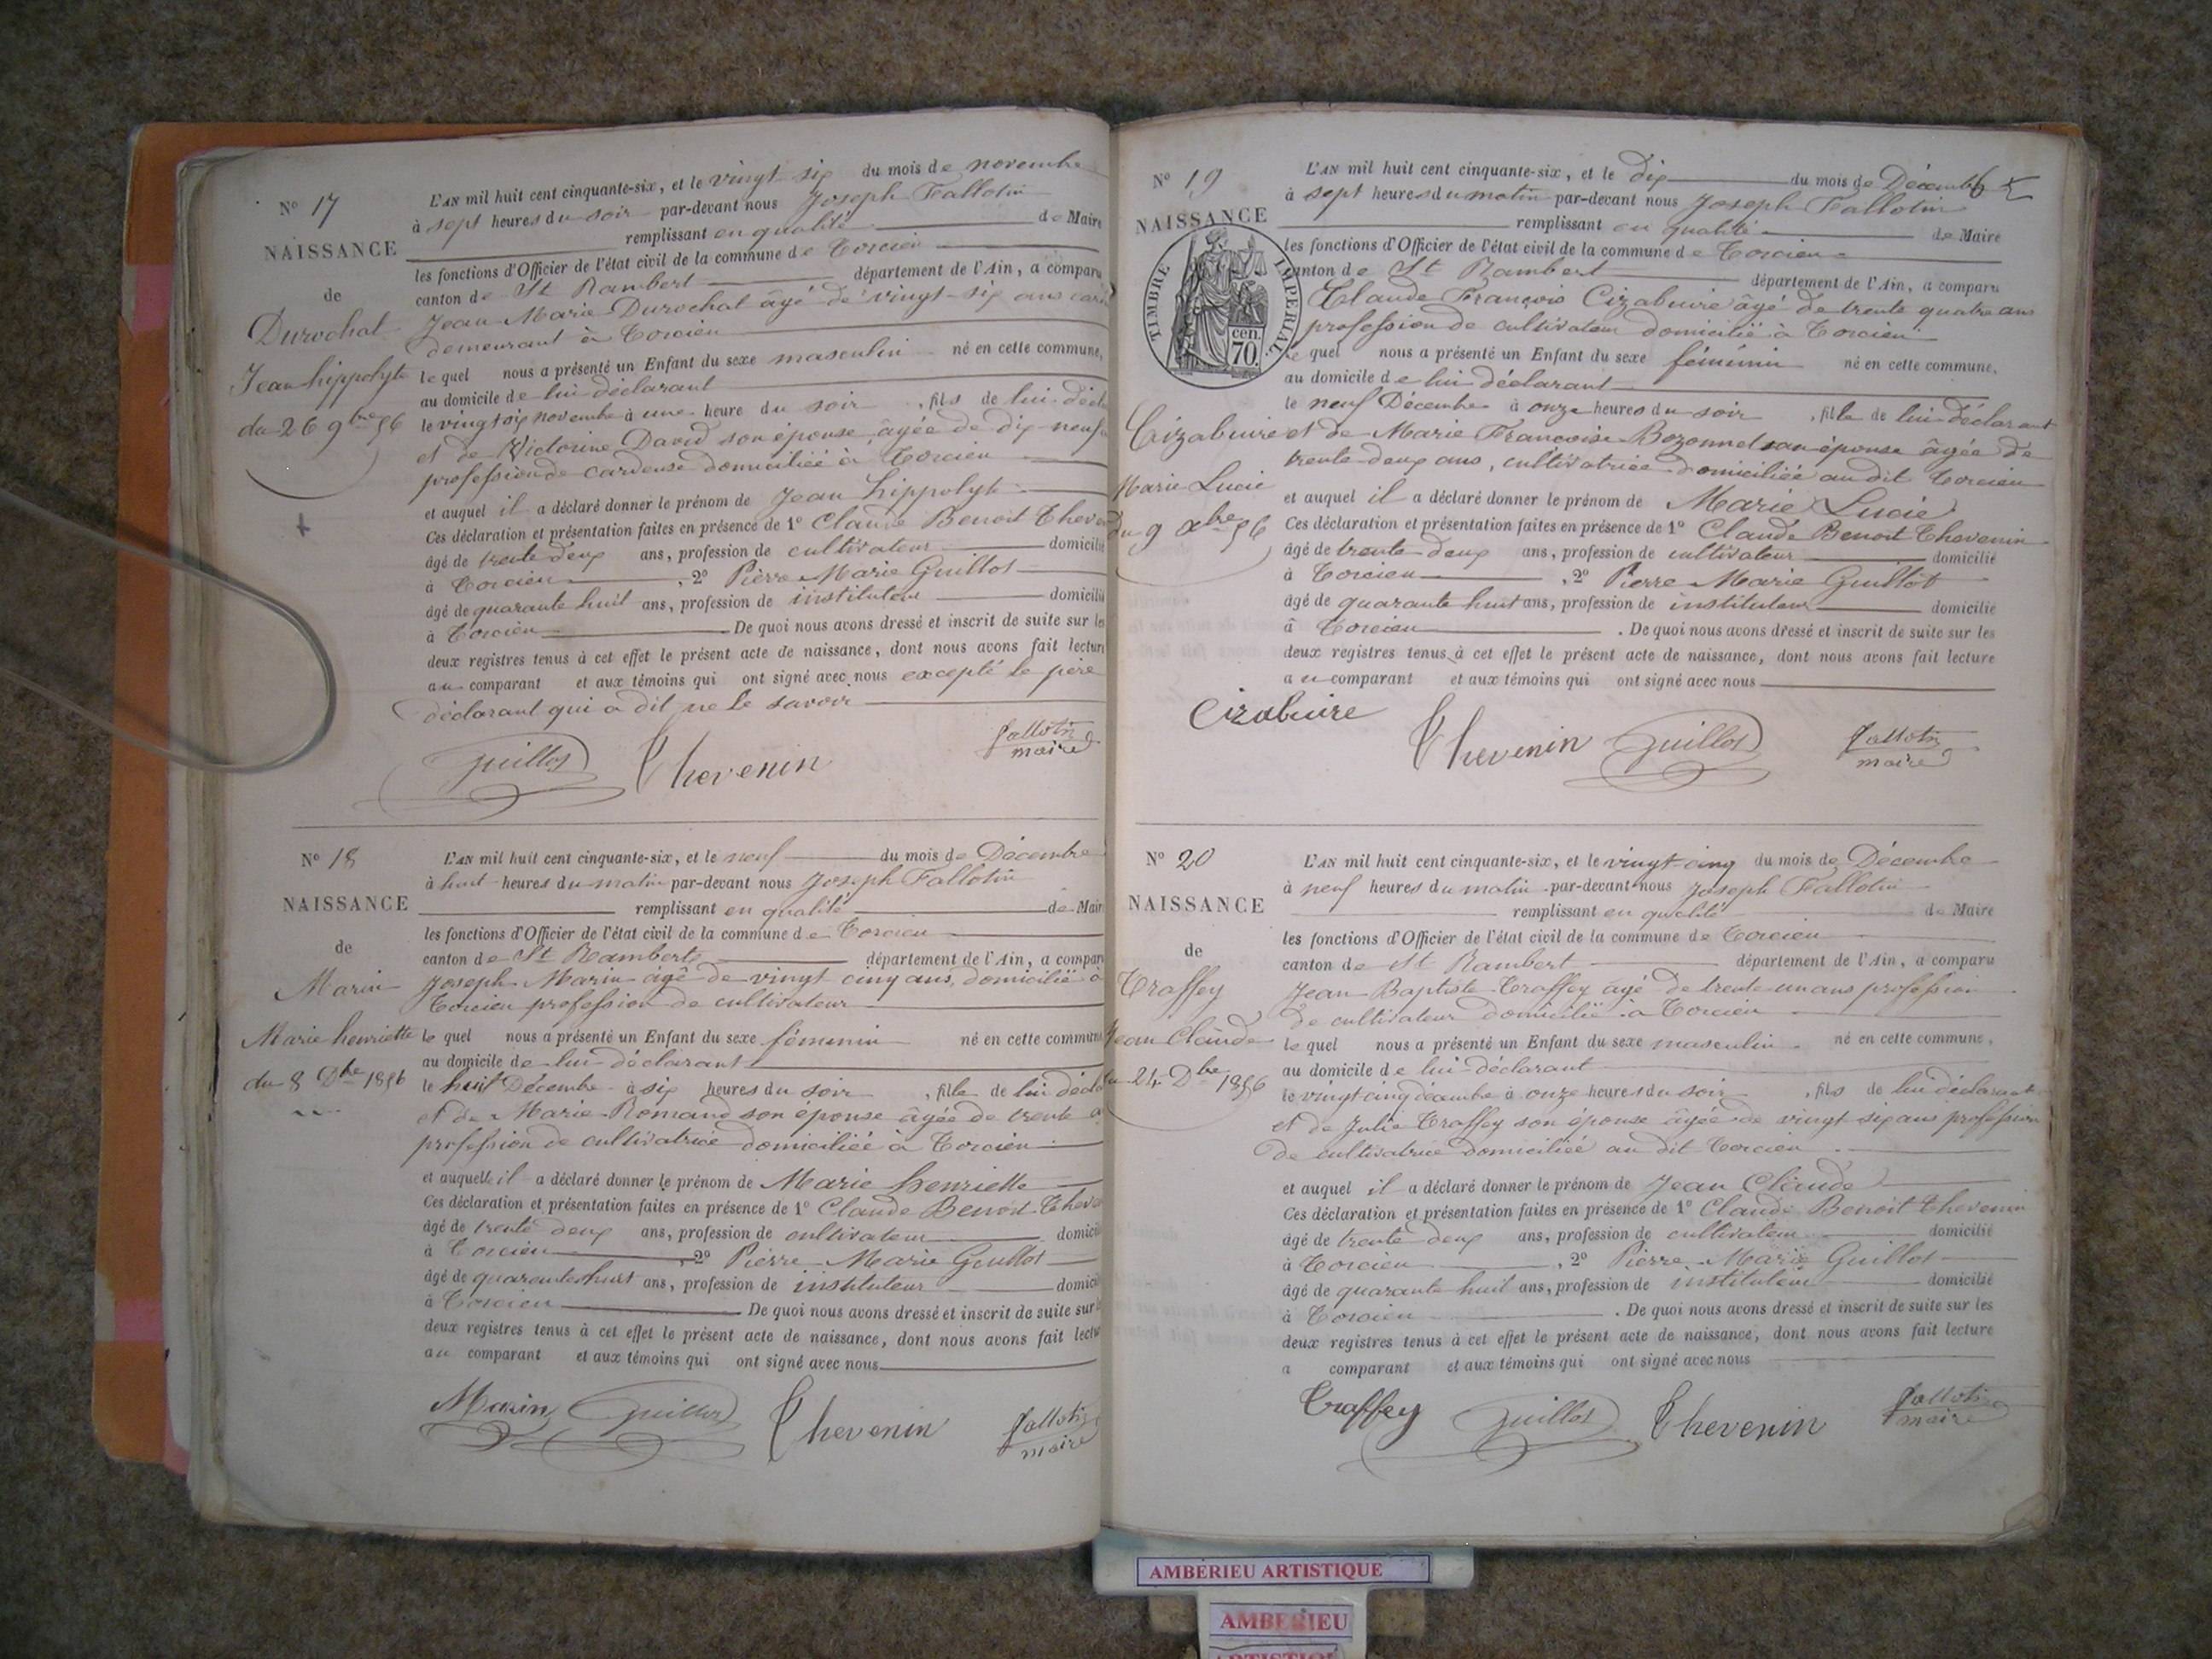 N° 17
NAISSANCE
de
Durochat
Jean hippolyte
du 26 9bre 56
L'AN mil huit cent cinquante-six, et le vingt-six du mois de novembre
à sept heures du soir par-devant nous Joseph Fallotin
remplissant en qualité de Maire
les fonctions d'Officier de l'état civil de la commune de Torcieu
canton de St Rambert département de l'Ain, a comparu
Jean Marie Durochat âgé de vingt-six ans
demeurant à Torcieu
le quel nous a présenté un Enfant du sexe masculin né en cette commune,
au domicile de lui déclarant
le vingt six novembre à une heure du soir, fils de lui
et de Victorine David son épouse âgée de dix-neuf
profession de cardeuse domiciliée à Torcieu
et auquel il a déclaré donner le prénom de Jean hippolyte
Ces déclaration et présentation faites en présence de 1° Claude Benoit
âgé de trente deux ans, profession de cultivateur domicilié
à Torcieu, 2° Pierre Marie Guillot
âgé de quarante huit ans, profession de instituteur domicilié
à Torcieu De quoi nous avons dressé et inscrit de suite sur les
deux registres tenus à cet effet le présent acte de naissance, dont nous avons fait lecture
au comparant et aux témoins qui ont signé avec nous excepté le père
déclarant qui a dit ne le savoir
Guillot Thevenin Fallotin
maire
N° 18
NAISSANCE
de
Marin
Marie henriette
du 8 Dbre 1856
L'AN mil huit cent cinquante-six, et le neuf du mois de Décembre
à huit heures du matin par-devant nous Joseph Fallotin
remplissant en qualité de Mair
les fonctions d'Officier de l'état civil de la commune de Torcieu
canton de St Rambert département de l'Ain, a comparu
Joseph Marin âgé de vingt cinq ans, domicilié à
Torcieu profession de cultivateur
le quel nous a présenté un Enfant du sexe féminin né en cette commune
au domicile de lui déclarant
le huit Décembre à six heures du soir, fille de lui
et de Marie Romand son épouse âgée de trente
profession de cultivatrice domiciliée à Torcieu
et auquelle il a déclaré donner le prénom de Marie henriette
Ces déclaration et présentation faites en présence de 1° Claude Benoit
âgé de trente deux ans, profession de cultivateur
à Torcieu 2° Pierre Marie Guillot
âgé de quarante huit ans, profession de instituteur
à Torcieu De quoi nous avons dressé et inscrit de suite sur
deux registres tenus à cet effet le présent acte de naissance, dont nous avons fait
au comparant et aux témoins qui ont signé avec nous
Marin Guillot Thevenin Fallotin
maire
N° 19
NAISSANCE
TIMBRE IMPÉRIAL
70 cen.
Cizabuire
Marie Lucie
du 9 Xbre 56
L'AN mil huit cent cinquante-six, et le dix du mois de Décembre
à sept heures du matin par-devant nous Joseph Fallotin
remplissant en qualité de Maire
les fonctions d'Officier de l'état civil de la commune de Torcieu
canton de St Rambert département de l'Ain, a comparu
Claude François Cizabuire âgé de trente quatre ans
profession de cultivateur domicilié à Torcieu
le quel nous a présenté un Enfant du sexe féminin né en cette commune,
au domicile de lui déclarant
le neuf Décembre à onze heures du soir, fille de lui déclarant
et de Marie Francoise Bozonnet son épouse âgée de
trente deux ans, cultivatrice domiciliée au dit Torcieu
et auquel il a déclaré donner le prénom de Marie Lucie
Ces déclaration et présentation faites en présence de 1° Claude Benoit Thevenin
âgé de trente deux ans, profession de cultivateur domicilié
à Torcieu, 2° Pierre Marie Guillot
âgé de quarante huit ans, profession de instituteur domicilié
à Torcieu. De quoi nous avons dressé et inscrit de suite sur les
deux registres tenus à cet effet le présent acte de naissance, dont nous avons fait lecture
au comparant et aux témoins qui ont signé avec nous
Cizabuire Thevenin Guillot Fallotin
maire
N° 20
NAISSANCE
de
Traffey
Jean Claude
24 Dbre 1856
L'AN mil huit cent cinquante-six, et le vingt-cinq du mois de Décembre
à neuf heures du matin par-devant nous Joseph Fallotin
remplissant en qualité de Maire
les fonctions d'Officier de l'état civil de la commune de Torcieu
canton de St Rambert département de l'Ain, a comparu
Jean Baptiste Traffey âgé de trente un ans profession
de cultivateur domicilié à Torcieu
le quel nous a présenté un Enfant du sexe masculin né en cette commune,
au domicile de lui déclarant
le vingt cinq décembre à onze heures du soir, fils de lui déclarant
et de Julie Traffey son épouse âgée de vingt six ans profession
de cultivatrice domiciliée au dit Torcieu
et auquel il a déclaré donner le prénom de Jean Claude
Ces déclaration et présentation faites en présence de 1° Claude Benoit Thevenin
âgé de trente deux ans, profession de cultivateur domicilié
à Torcieu, 2° Pierre Marie Guillot
âgé de quarante huit ans, profession de instituteur domicilié
à Torcieu. De quoi nous avons dressé et inscrit de suite sur les
deux registres tenus à cet effet le présent acte de naissance, dont nous avons fait lecture
a comparant et aux témoins qui ont signé avec nous
Traffey Guillot Thevenin Fallotin
maire
AMBERIEU ARTISTIQUE
AMBERIEU
ARTISTIQUE